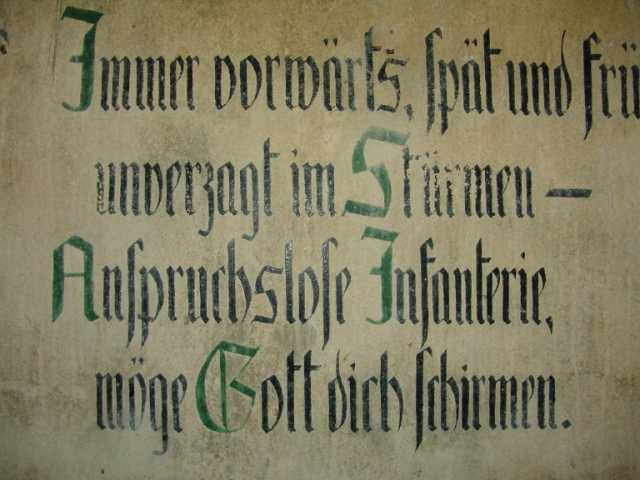 Immer vorwärts, spät und frü
unverzagt im Stürmen –
Anspruchslose Infanterie,
möge Gott dich schirmen.